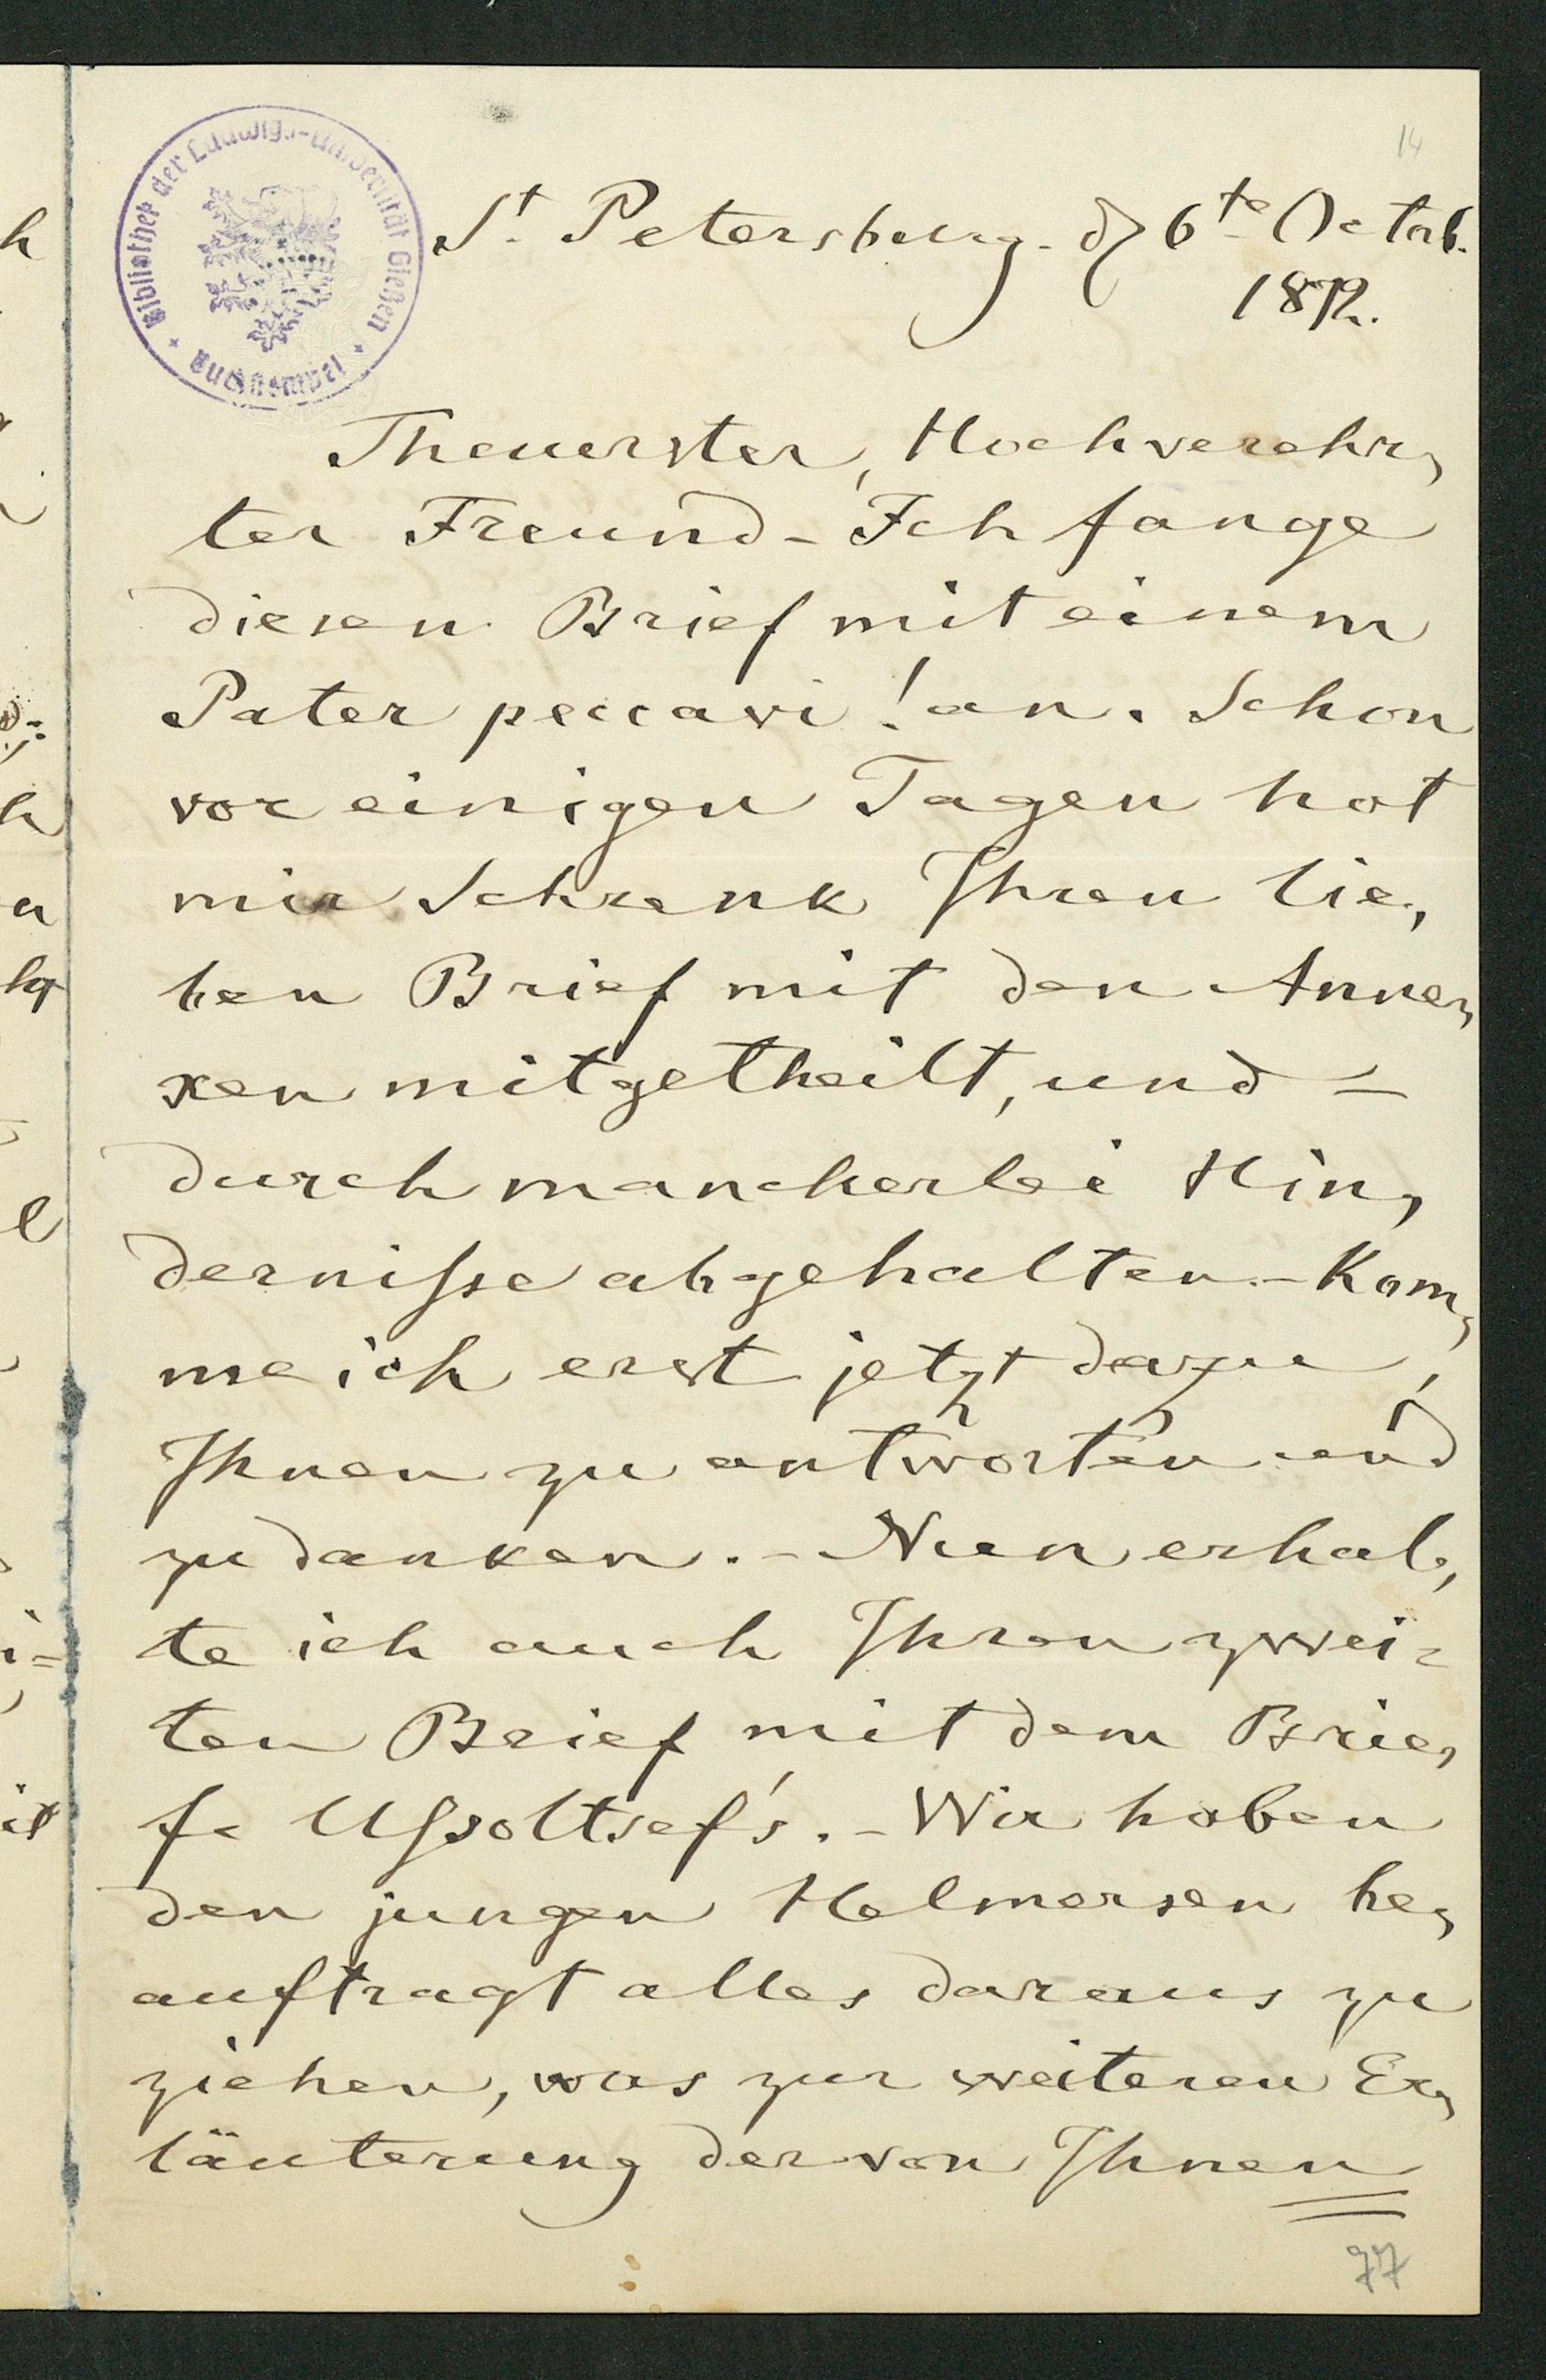 14
Bibliothek der Ludwigs-Universität Gießen
Buchstempel
St. Petersburg. d 6te Octob.
1872.
Theuerster, Hochverehr,
ter Freund - Ich fange
diesen Brief mit einem
Pater peccavi! an. Schon
vor einigen Tagen hat
mir Schrenk Ihren lie,
ben Brief mit den Anne,
xen mitgetheilt, und -
durch mancherlei Hin,
dernisse abgehalten - kom,
me ich erst jetzt dazu,
Ihnen zu antworten und
zu danken. - Nun erhal,
te ich auch Ihren zwei=
ten Brief mit dem Brie,
fe Ussoltsef's. - Wir haben
den jungen Helmersen be,
auftragt alles daraus zu
ziehen, was zur weiteren Er,
läuterung der von Ihnen
77